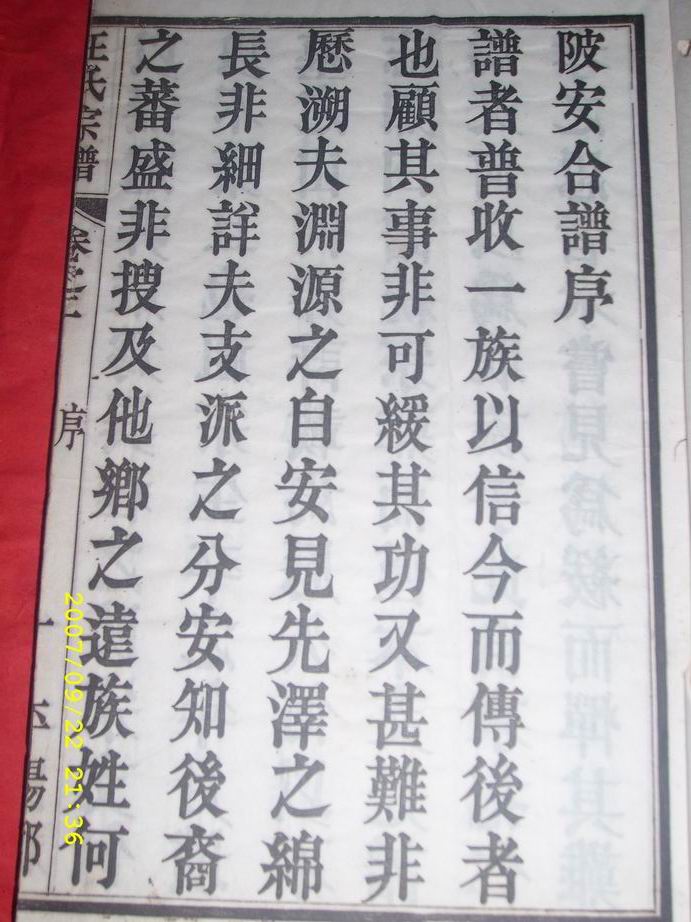 陂安合譜序
譜者普收一族以信今而傳後者
也顧其事非可緩其功又甚難非
歷溯夫淵源之自安見先澤之綿
長非細詳夫支派之分安知後裔
之蕃盛非搜及他鄉之遠族姓何
汪氏宗譜
卷之三
序
一
平陽郡
2007/09/22 21:36